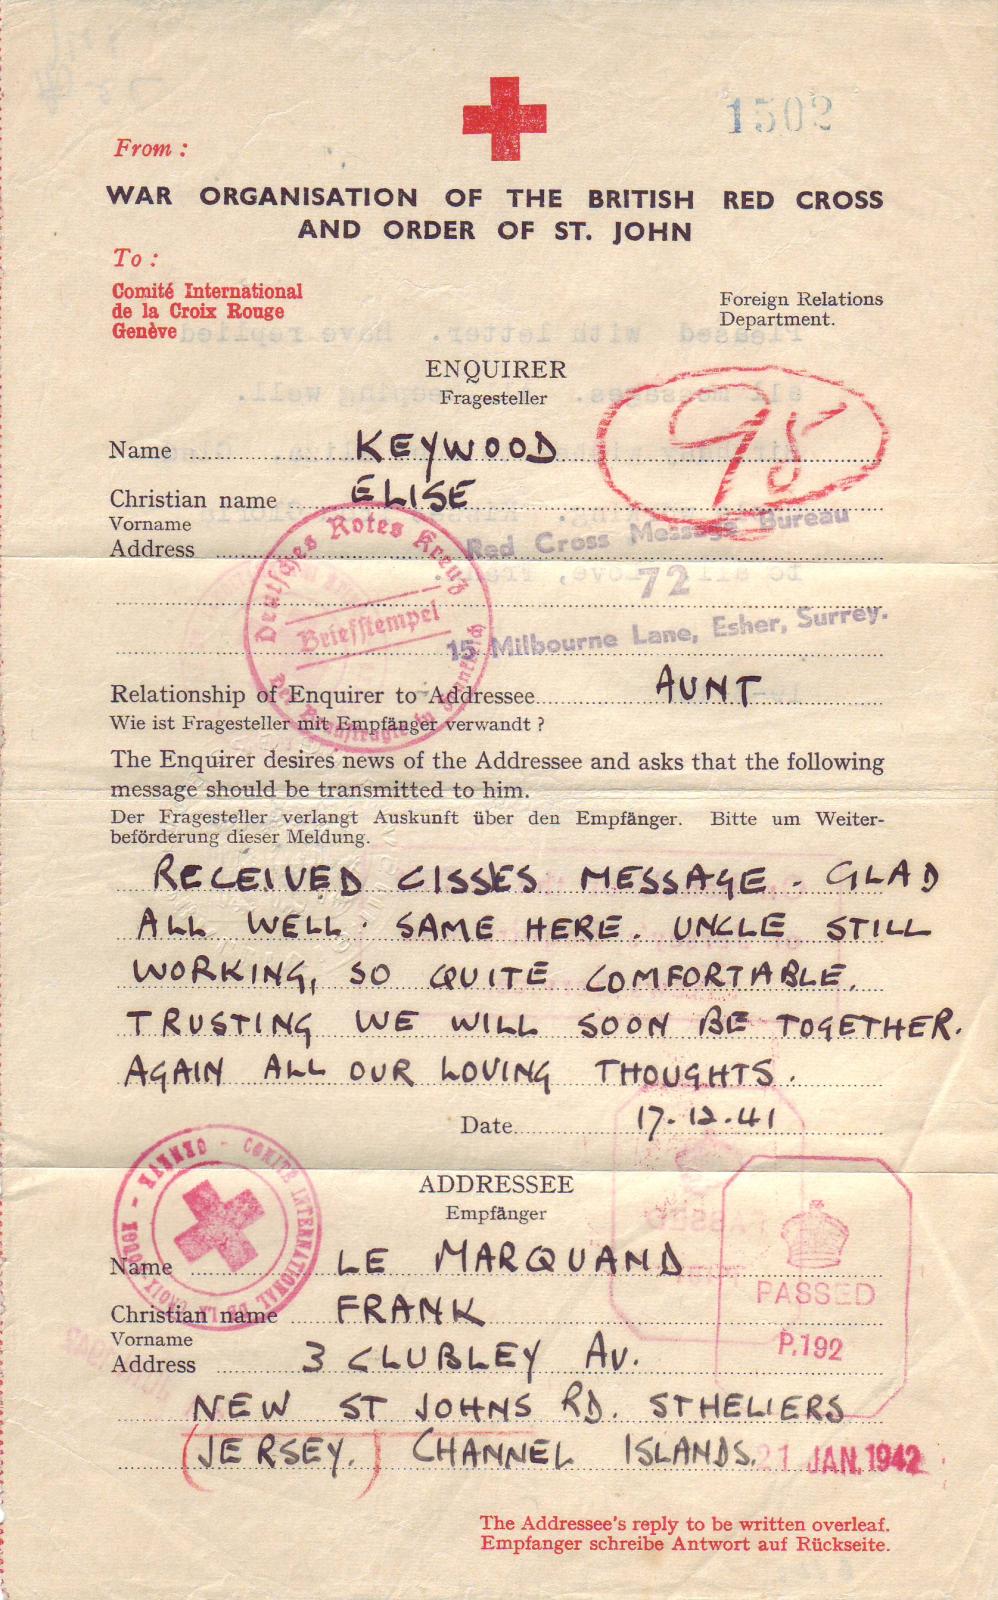 1502
From :
WAR ORGANISATION OF THE BRITISH RED CROSS
AND ORDER OF ST. JOHN
To :
Comité International
de la Croix Rouge
Genève
Foreign Relations
Department.
ENQUIRER
Fragesteller
95
Name KEYWOOD
Christian name ELISE
Vorname
Address
Red Cross Message Bureau
72
15 Milbourne Lane, Esher, Surrey.
Deutsches Rotes Kreuz
Briefstempel
Der Beauftragte in Frankreich
Relationship of Enquirer to Addressee AUNT
Wie ist Fragesteller mit Empfänger verwandt ?
The Enquirer desires news of the Addressee and asks that the following
message should be transmitted to him.
Der Fragesteller verlangt Auskunft über den Empfänger. Bitte um Weiter-
beförderung dieser Meldung.
RECEIVED CISSES MESSAGE. GLAD
ALL WELL. SAME HERE. UNCLE STILL
WORKING, SO QUITE COMFORTABLE.
TRUSTING WE WILL SOON BE TOGETHER.
AGAIN ALL OUR LOVING THOUGHTS.
Date 17.12.41
COMITÉ INTERNATIONAL DE LA CROIX-ROUGE - GENÈVE -
ADDRESSEE
Empfänger
Name LE MARQUAND
Christian name FRANK
Vorname
Address 3 CLUBLEY AV.
NEW ST JOHNS RD. ST HELIERS
(JERSEY.) CHANNEL ISLANDS.
PASSED
P.192
21 JAN. 1942
The Addressee's reply to be written overleaf.
Empfanger schreibe Antwort auf Rückseite.